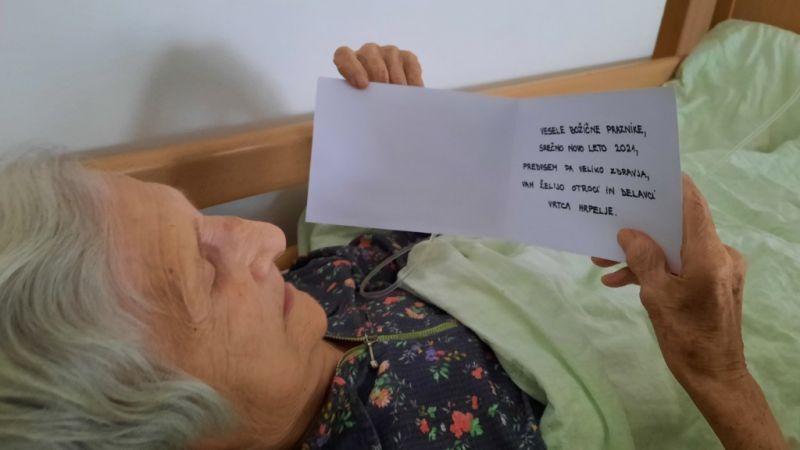 VESELE BOŽIČNE PRAZNIKE,
SREČNO NOVO LETO 2021,
PREDVSEM PA VELIKO ZDRAVJA,
VAM ŽELIJO OTROCI IN DELAVCI
VRTCA HRPELJE.